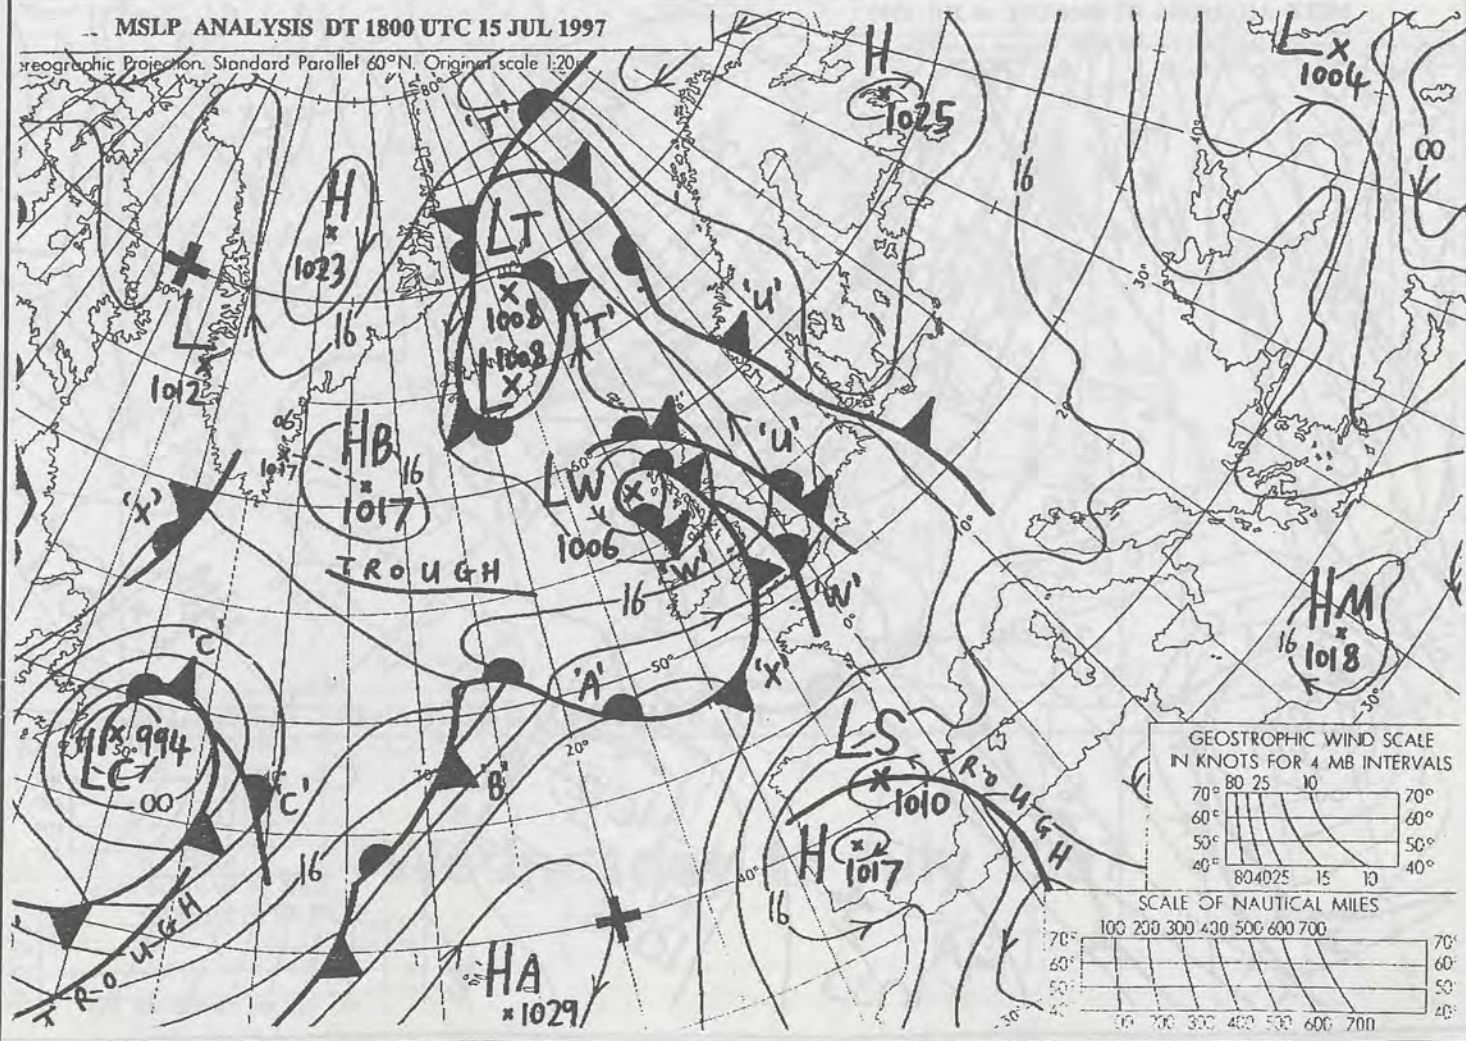 MSLP ANALYSIS DT 1800 UTC 15 JUL 1997
reographic Projection. Standard Parallel 60°N. Original scale 1:20m
80°
'T'
H
1025
L
1004
40°
00
16
H
1023
LT
1008
1008
L
'T'
'U'
30°
16
L
1012
06
1017
HB
16
1017
'U'
20°
'X'
60°
LW
1006
'W'
'W'
0°
TROUGH
16
10°
HM
16
1018
30°
'C'
'A'
50°
'X'
994
50°
LC
00
'C'
'B'
20°
LS
1010
TROUGH
16
H
1017
40°
16
TROUGH
HA
1029
30°
GEOSTROPHIC WIND SCALE
IN KNOTS FOR 4 MB INTERVALS
80 25 10
70° 70°
60° 60°
50° 50°
40° 40°
80 40 25 15 10
SCALE OF NAUTICAL MILES
100 200 300 400 500 600 700
70° 70°
60° 60°
50° 50°
40° 40°
100 200 300 400 500 600 700